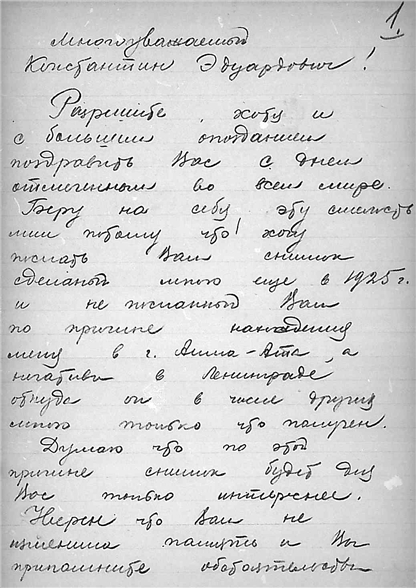 1.
Многоуважаемый
Константин Эдуардович!
Разрешите, хотя и
с большим опозданием
поздравить Вас с днем
отмеченным во всем мире.
Беру на себя эту смелость
лишь потому что хочу
послать Вам снимок
сделаный мною еще в 1925 г.
и не посланный Вам
по причине нахождения
меня в г. Алма-Ата, а
негатива в Ленинграде
откуда он в числе других
мною только что получен.
Думаю что по этой
причине снимок будет для
Вас только интереснее.
Уверен что Вам не
изменила память и Вы
припомните обстоятельства